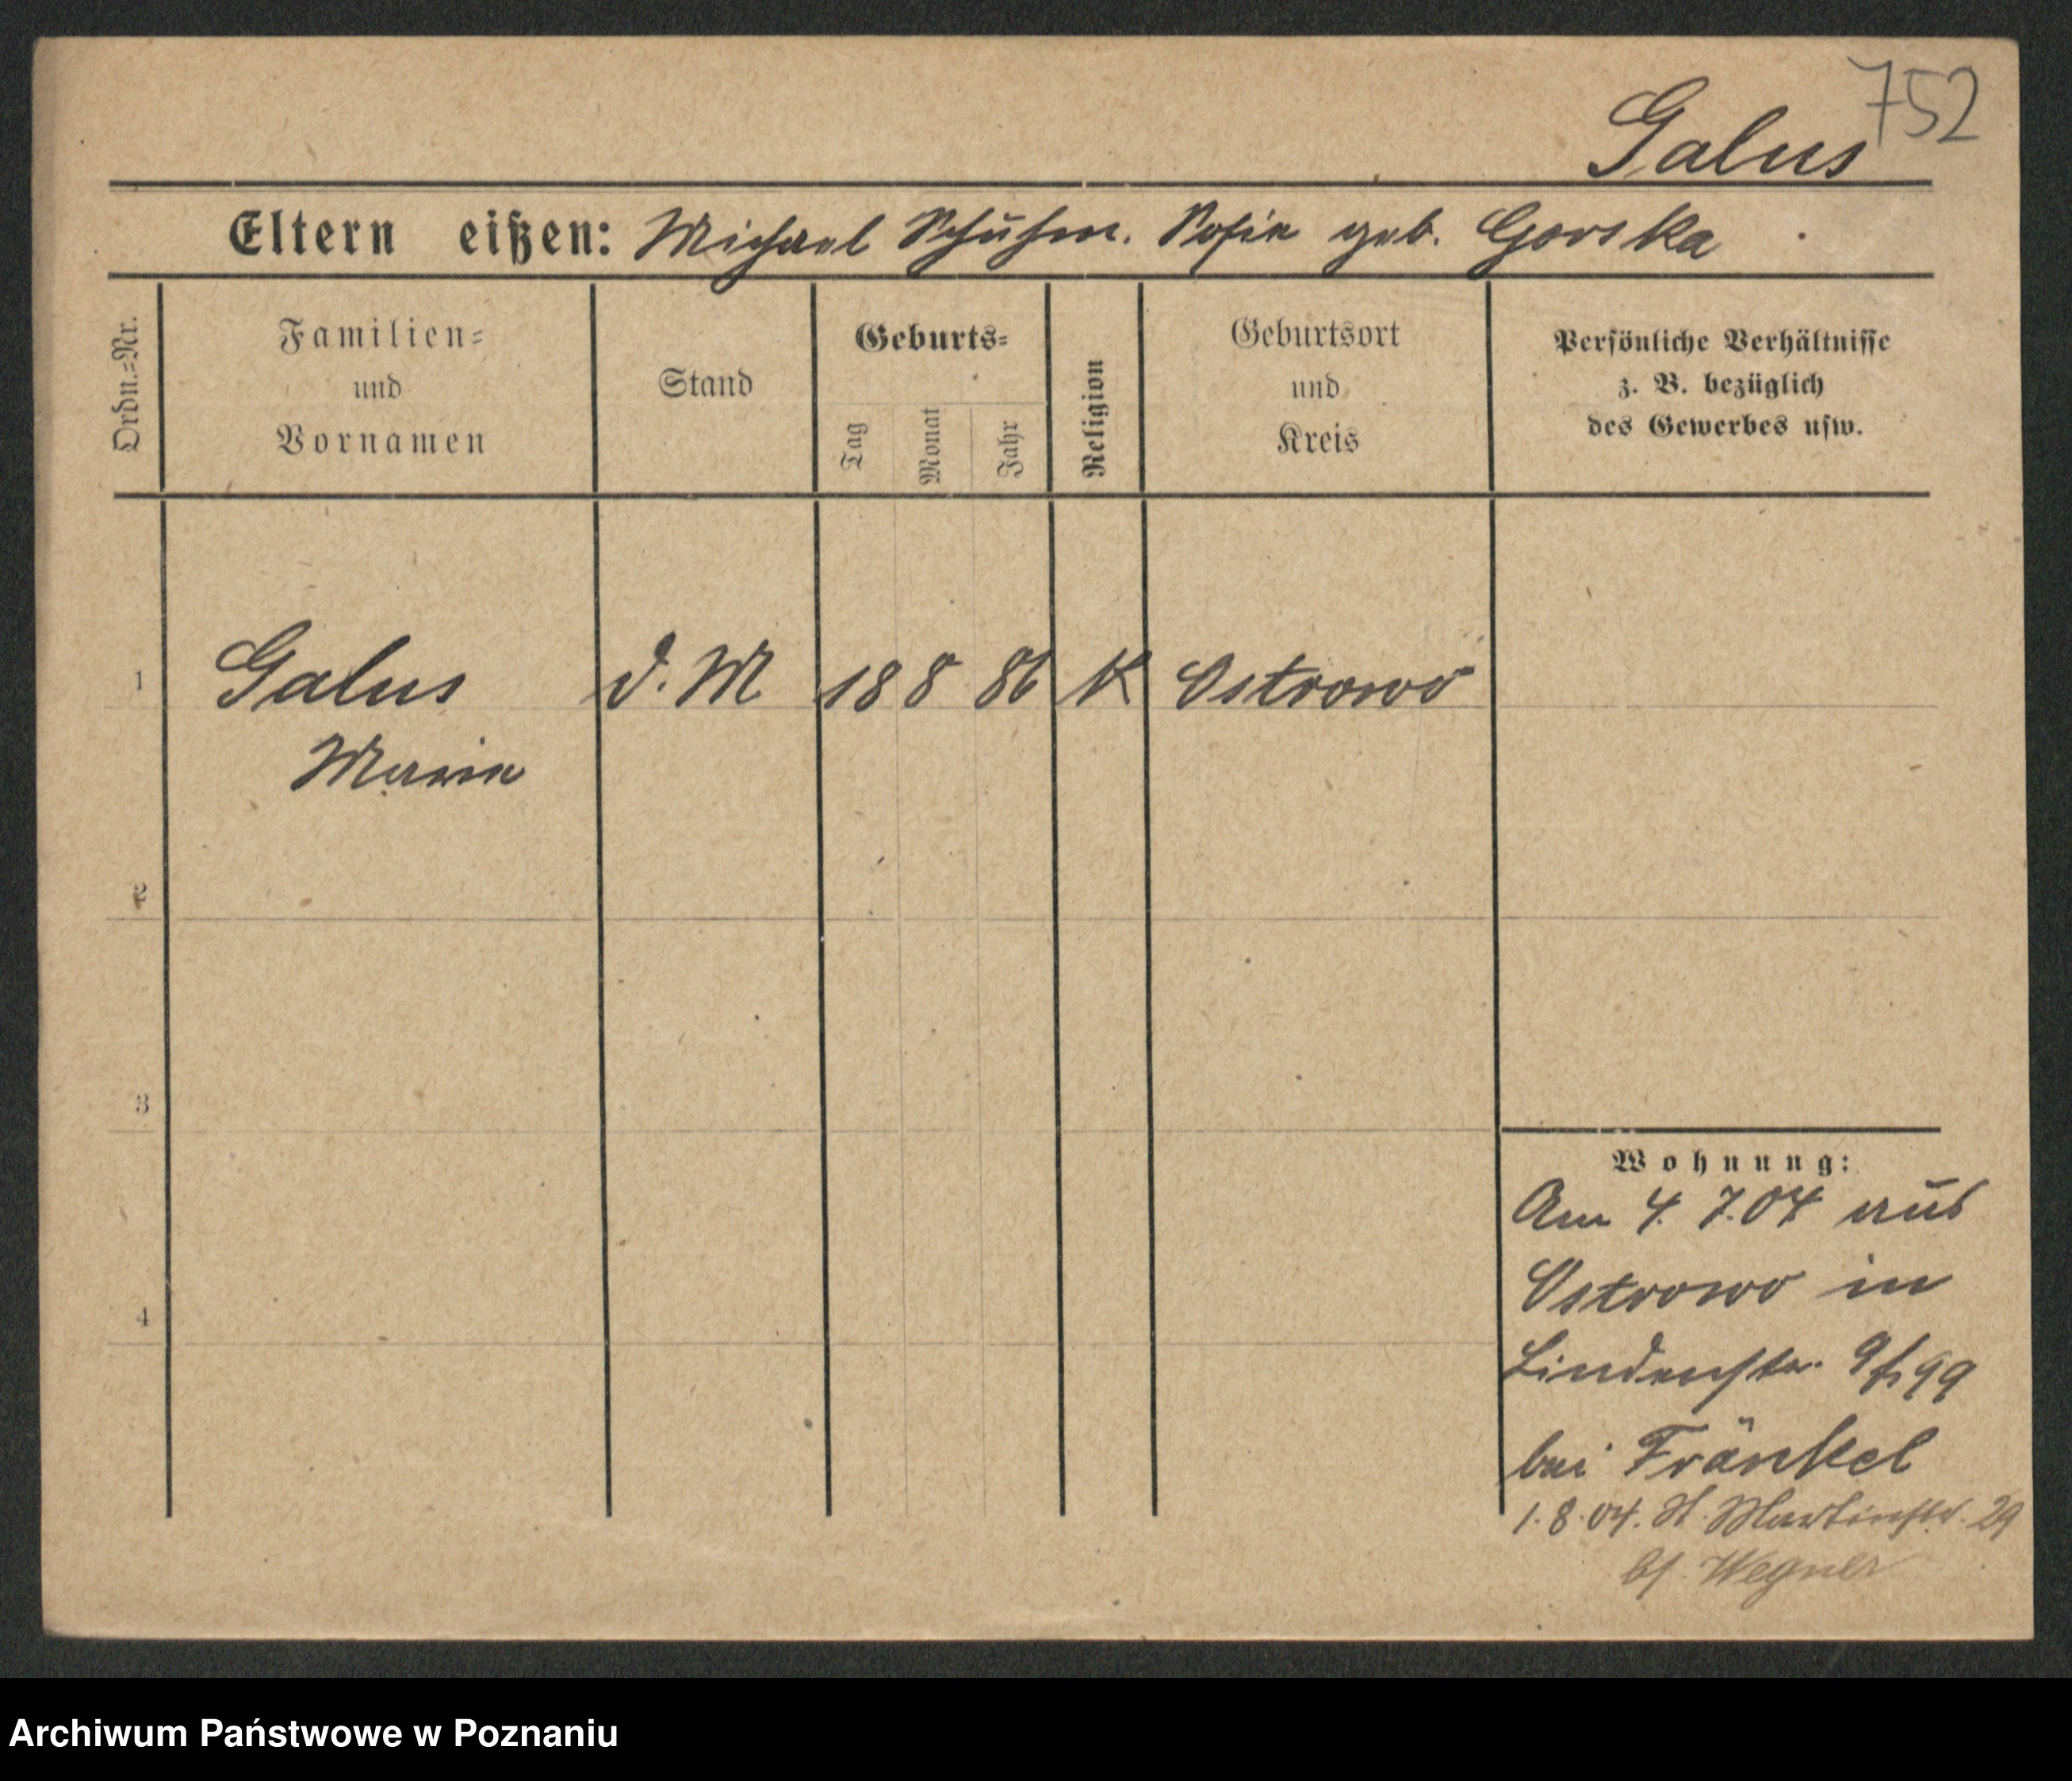 752
Galus
Eltern eißen: Michael Schuhm. Sofia geb. Gorska
Ordn.=Nr.
Familien=
und
Vornamen
Stand
Geburts=
Tag
Monat
Jahr
Religion
Geburtsort
und
Kreis
Persönliche Verhältnisse
z. B. bezüglich
des Gewerbes usw.
1 Galus d. M 18 8 86 K Ostrowo
Maria
2
3
4
Wohnung:
Am 4. 7.04 aus
Ostrowo in
Lindenstr.
bei Fränkel
1.8.04. St. Martinstr. 29
b/. Wegner
Archiwum Państwowe w Poznaniu